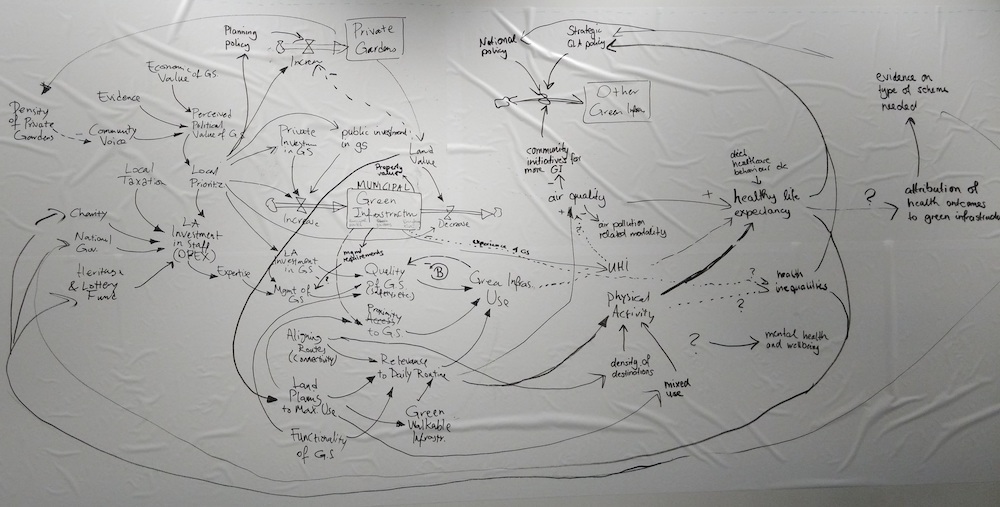 Planning
policy
Increase
Private
Gardens
Economic
Value of GS
Evidence
Density
of Private
Gardens
Community
Voice
Perceived
Political
Value of G.S
Private
Investm
in GS
public investment
in gs
Land
Value
Property
value
Local
Taxation
Local
Priorities
MUNICIPAL
Green
Infrastructure
Increase
Decrease
Charity
National
Gov.
Heritage
& Lottery
Fund
LA
Investment
in Staff
(OPEX)
Expertise
LA
Investment
in GS
Mgmt of
GS
mgmt
requirements
Quality
Of G.S
Proximity
Access
to G.S.
experience of GS
B
Green Infras.
Use
Aligning
Routes
(Connectivity)
Relevance
to Daily Routine
Land
Planning
to Max. Use
Green
Walkable
Infrastr.
Functionality
of G.S
National
policy
Strategic
GLA policy
Other
Green Infra
community
initiatives for
more GI
air quality
+
?
air pollution
related mortality
UHI
physical
Activity
density of
destinations
mixed
use
diet
healthcare
behaviour etc
+
healthy life
expectancy
?
?
health
inequalities
?
mental health
and wellbeing
evidence on
type of scheme
needed
?
attribution of
health outcomes
to green infrastructure